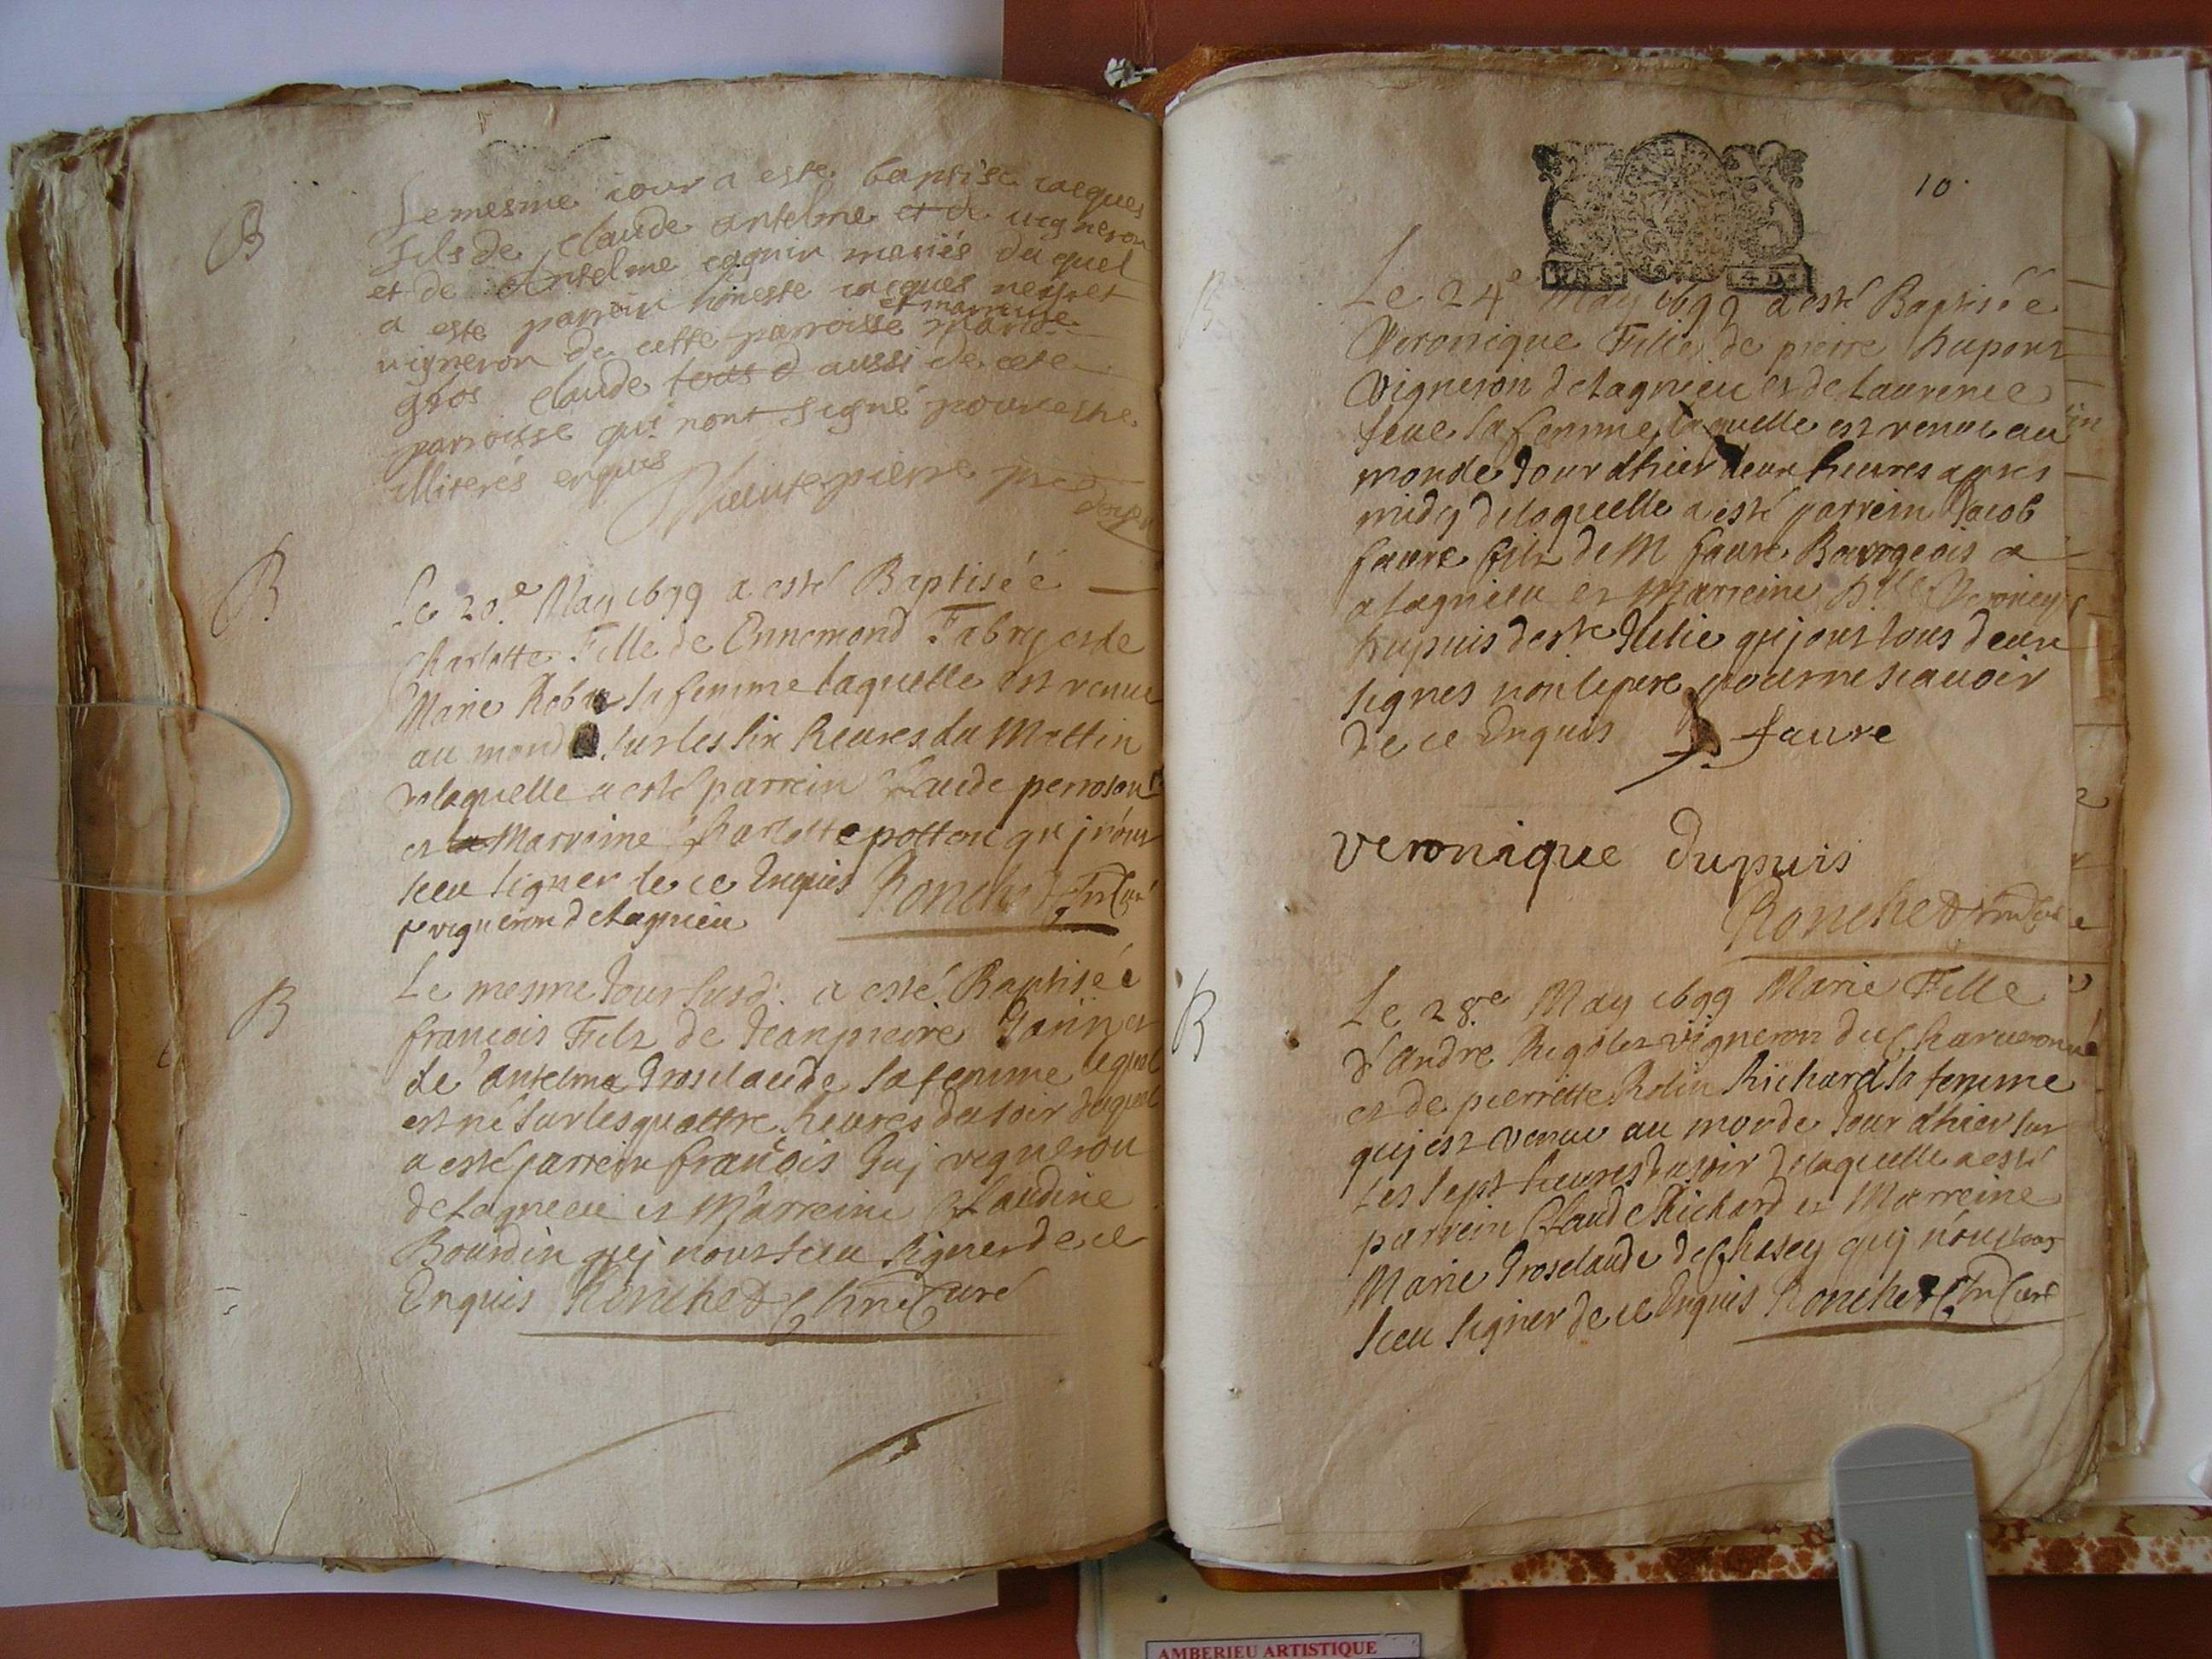 B
Le mesme iour a este baptisé iacques
fils de claude anselme et de vigneron
et de Anselme cognin mariés duquel
a esté parrein honeste iacques
et marreine
vigneron de cette parroisse marie
gros claude tous d aussi de cete
parroisse qui nont signé pour estre
illiterés enquis
B
Le 20.e May 1699 a esté Baptiséé
Charlotte Fille de Ennemond Fabry et de
Marie Robin sa femme laquelle est venue
au monde sur les six heures du Mattin
de laquelle a esté parrein Claude
et la Marreine Charlotte potton quj n'ont
sceu signer de ce Enquis Ronchet
vigneron de Lagnieu
B
Le mesme Jour susd. a esté Baptiséé
francois Fils de Jean pierre et
de anselma Grosclaude sa femme lequel
est né sur les quattre heures du soir duquel
a esté parrein francois Guj vigneron
de Lagnieu et Marreine Claudine
Bourdin quj n'ont sceu signer de ce
Enquis Ronchet Curé
10.
B
Le 24e May 1699 a esté Baptiséé
Veronique Fille de pierre Dupont
Vigneron de Lagnieu et de Laurence
sa femme laquelle est venue au
monde Jour dhier deux heures apres
midy de laquelle a esté parrein Jacob
faure fils de M faure Bourgeois a
a Lagnieu et Marreine Dlle Veronique
Dupuis de st Julie quj ont tous deux
signés non le pere pour ne scavoir
de ce Enquis J. faure
veronique dupuis
Ronchet
B
Le 28.e May 1699 Marie Fille
d'andre vigneron du
et de pierrette Richard sa femme
quj est venue au monde Jour dhier sur
les sept heures du soir de laquelle a esté
parrein Claude Richard et Marreine
Marie Grosclaude de Chasey quj n'ont
sceu signer de ce Enquis Ronchet Curé
AMBERIEU ARTISTIQUE